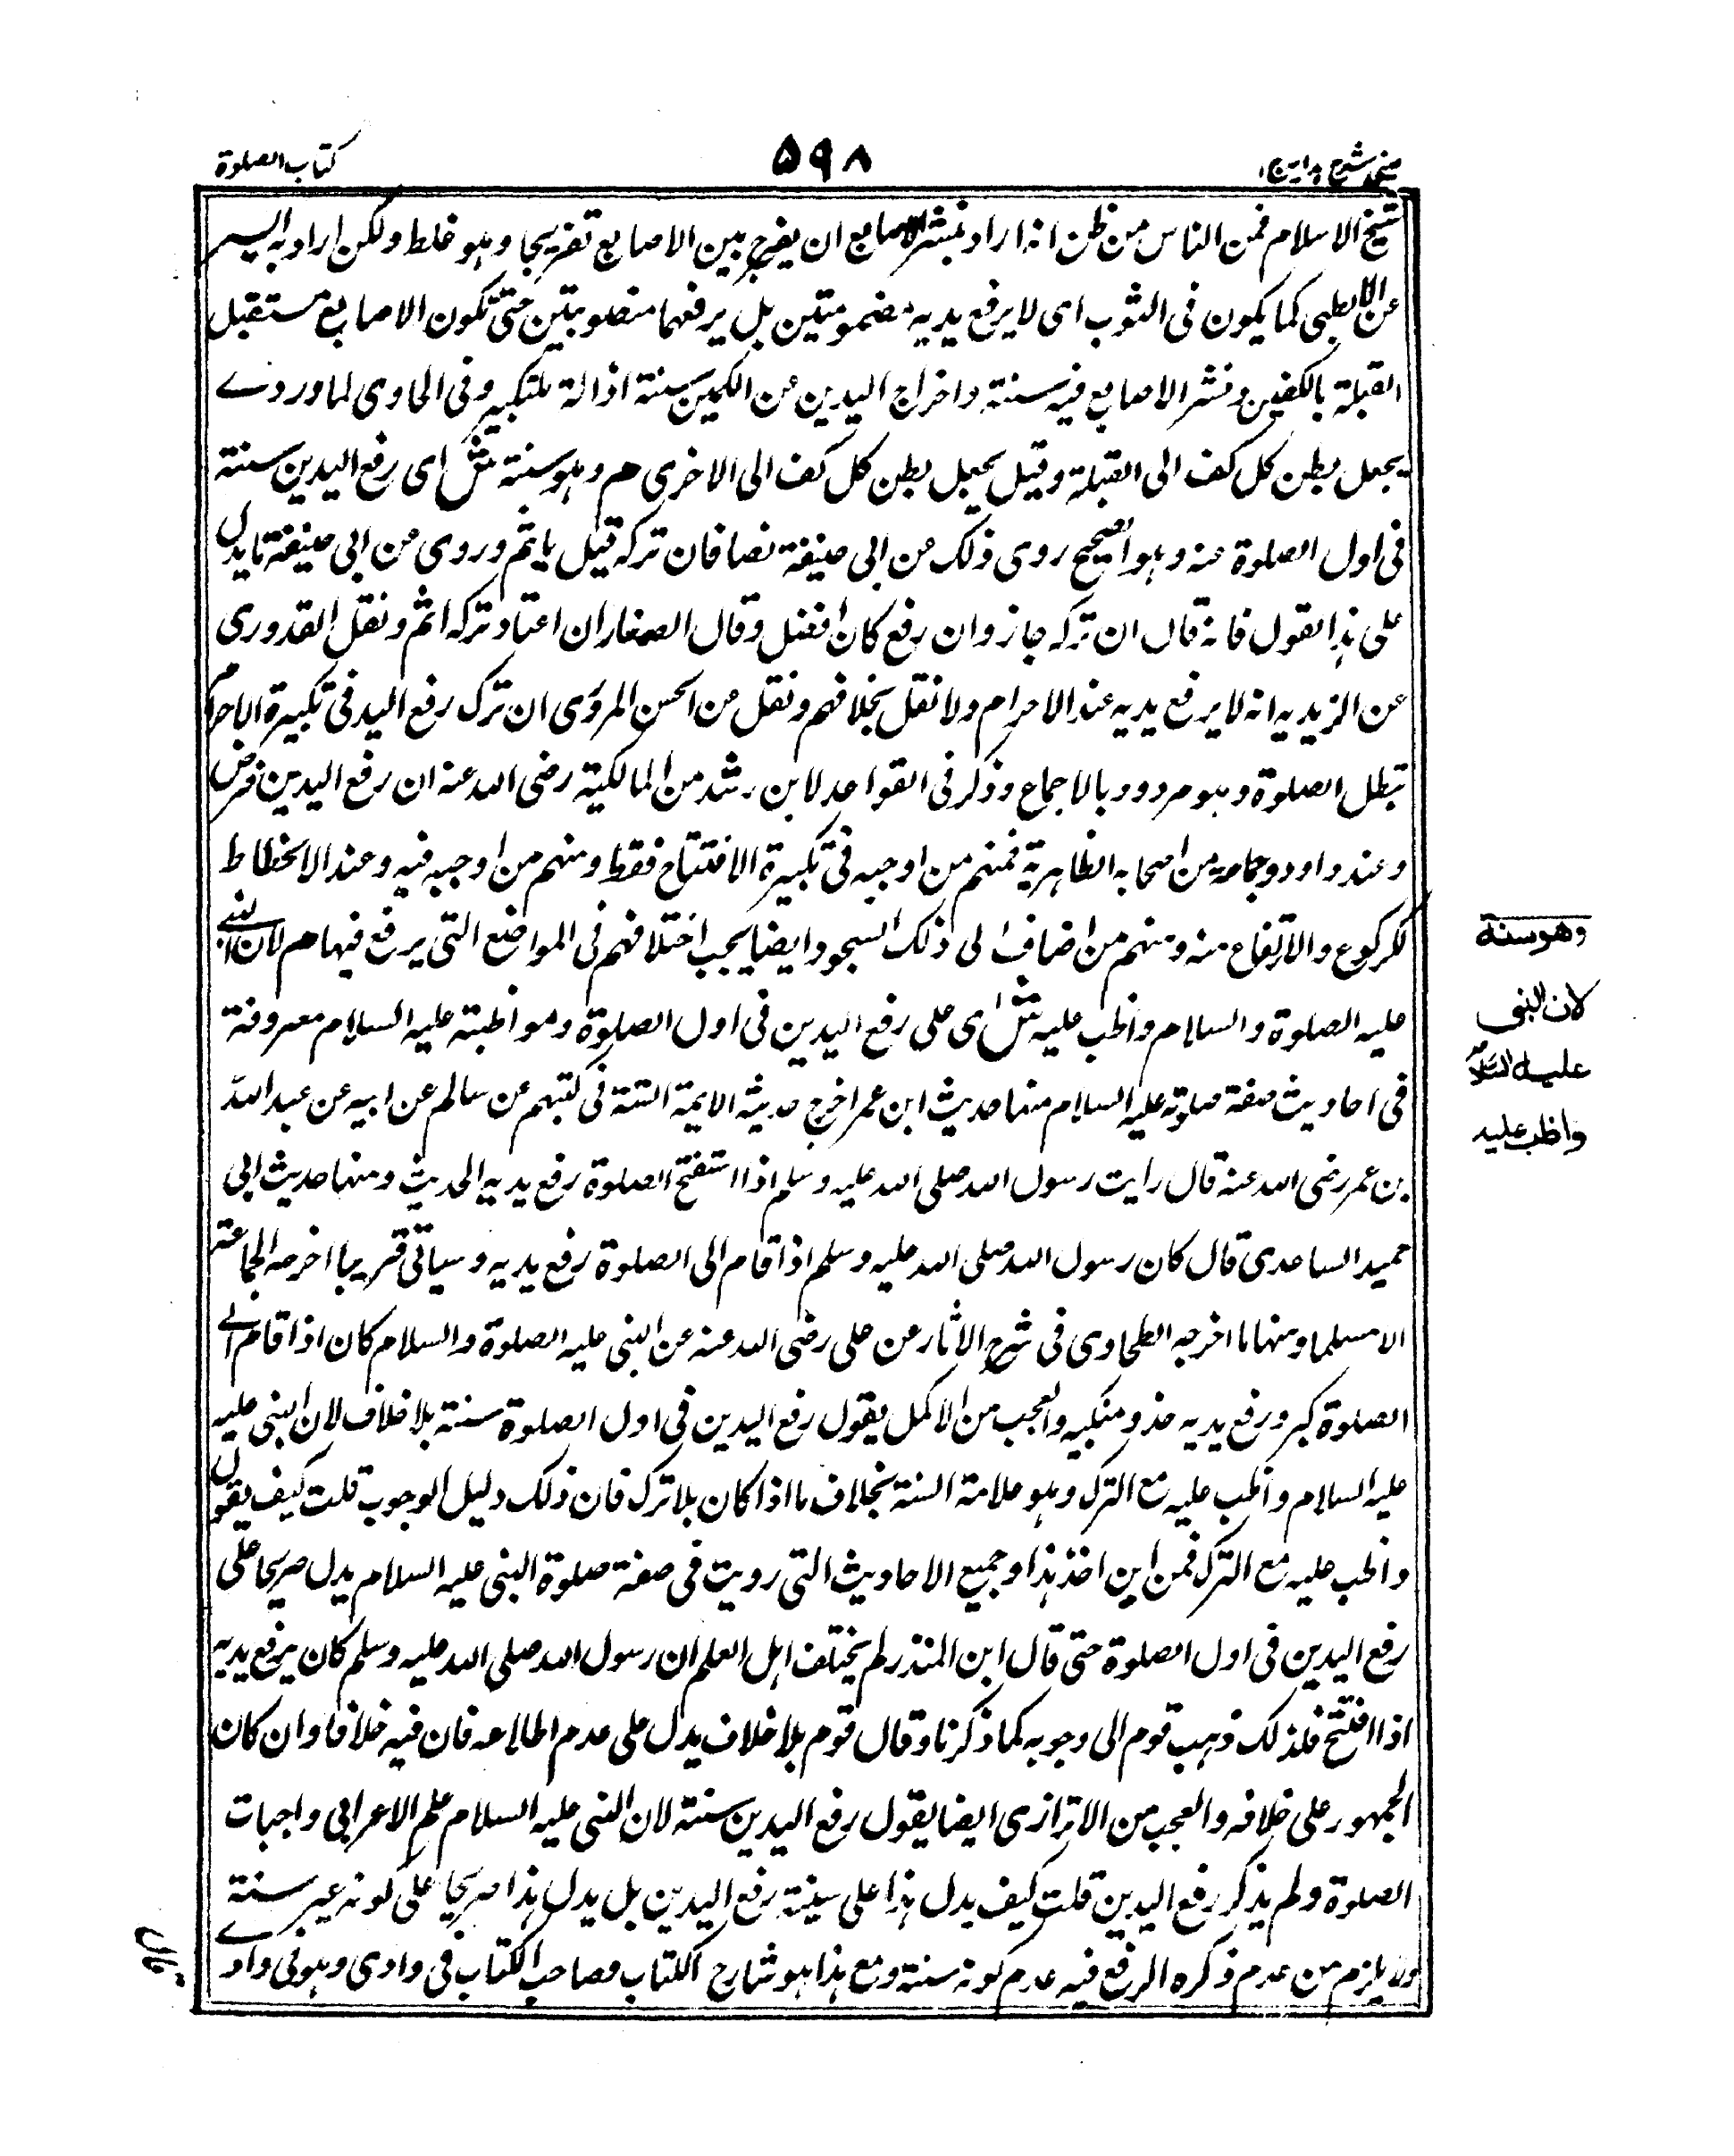 عینی شرح ہدایہ ج ۱
۵۹۸
کتاب الصلوة
شیخ الاسلام فمن الناس من ظن انه اراد بنشر الاصابع ان یفرج بین الاصابع تفریجا وہو غلط ولکن اراد به النشر
عن الطی کما یکون فی الثوب ای لا یرفع یدیه مضمومتین بل یرفعہما منصوبتین حتی تکون الاصابع مستقبل
القبلة بالکفین ونشر الاصابع فیه سنة واخراج الیدین من الکمین سنة اذالة للتکبیر وفی الحاوی لماوردے
یجعل بطن کل کف الی القبلة وقیل یجعل بطن کل کف الی الاخری م وہو سنة ش ای رفع الیدین سنة
فی اول الصلوة عنه وہو الصحیح روی ذلک عن ابی حنیفة نصا فان ترکه قیل یاثم وروی عن ابی حنیفة ما یدل
علی ہذا القول فانه قال ان ترکه جاز وان رفع کان افضل وقال الصفار ان اعتاد ترکه اثم ونقل القدوری
عن الزیدیه انه لا یرفع یدیه عند الاحرام ولا نقل بخلافہم ونقل من الحسن المروی ان ترک رفع الید فی تکبیرة الاحرام
تبطل الصلوة وہو مردود بالاجماع وذکر فی القواعد لابن رشد من المالکیة رضی الله عنه ان رفع الیدین فرض
وعند داود وجماعة من اصحابه الظاہریة فمنہم من اوجبه فی تکبیرة الافتتاح فقط ومنہم من اوجبه فیه وعند الانحطاط
للرکوع والارتفاع منه ومنہم من اضاف الی ذلک السجود ایضا یجب اختلافہم فی المواضع التی یرفع فیہا م لان النبی
علیه الصلوة والسلام واظب علیه ش ای علی رفع الیدین فی اول الصلوة ومواظبته علیه السلام معروفة
فی احادیث صفة صلوته علیه السلام منہا حدیث ابن عمر اخرج حدیثه الایمة الستة فی کتبہم عن سالم عن ابیه عن عبد الله
بن عمر رضی الله عنه قال رایت رسول الله صلی الله علیه وسلم اذا استفتح الصلوة رفع یدیه الحدیث ومنہا حدیث ابی
حمید الساعدی قال کان رسول الله صلی الله علیه وسلم اذا قام الی الصلوة رفع یدیه وسیاتی قریبا اخرجه الجماعة
الا مسلما ومنہا ما اخرجه الطحاوی فی شرح الاثار عن علی رضی الله عنه عن النبی علیه الصلوة والسلام کان اذا قام الے
الصلوة کبر ورفع یدیه حذو منکبیه والعجب من الاکمل یقول رفع الیدین فی اول الصلوة سنة بلا خلاف لان النبی علیه
علیه السلام واظب علیه مع الترک وہو علامة السنة بخلاف ما اذا کان بلا ترک فان ذلک دلیل الوجوب قلت کیف یقول
واظب علیه مع الترک فمن این اخذ ہذا وجمیع الاحادیث التی رویت فی صفة صلوة النبی علیه السلام یدل صریحا علی
رفع الیدین فی اول الصلوة حتی قال ابن المنذر لم یختلف اہل العلم ان رسول الله صلی الله علیه وسلم کان یرفع یدیه
اذا افتتح فلذلک ذہب قوم الی وجوبه کما ذکرنا وقال قوم بلا خلاف یدل علی عدم اطلاعه فان فیه خلافا وان کان
الجمہور علی خلافه والعجب من الاترازی ایضا یقول رفع الیدین سنة لان النبی علیه السلام علم الاعرابی واجبات
الصلوة ولم یذکر رفع الیدین قلت کیف یدل ہذا علی سنیة رفع الیدین بل یدل ہذا صریحا علی کونه غیر سنة
ولا یلزم من عدم ذکره الرفع فیه عدم کونه سنة ومع ہذا ہو شارح الکتاب وصاحب الکتاب فی وادی وہو فی واد
وهو سنة
لان النبی
علیه السلام
واظب علیه
قال